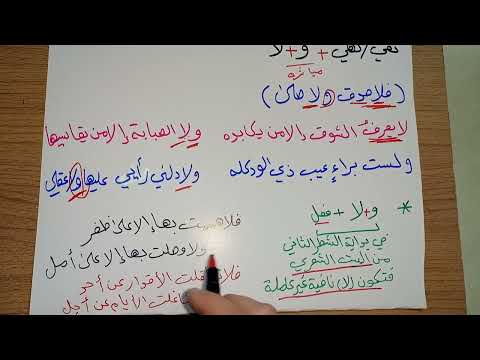 نفي/نهي + و+لا
مباشرة
(فلا صدق ولا صلى)
لا يعرف الشوق الا من يكابده ولا الصبابة إلا من يعانيها
ولست براءٍ عيب ذي الود كله ولا
* و+لا + فعل
في بداية الشطر الثاني
من البيت الشعري
فتكون (لا) نافية غير عاملة
فلا بها إلا على ظفر
ولا وصلت بها إلا على أمل
الأقدار عن أحد
الأيام عن أجل